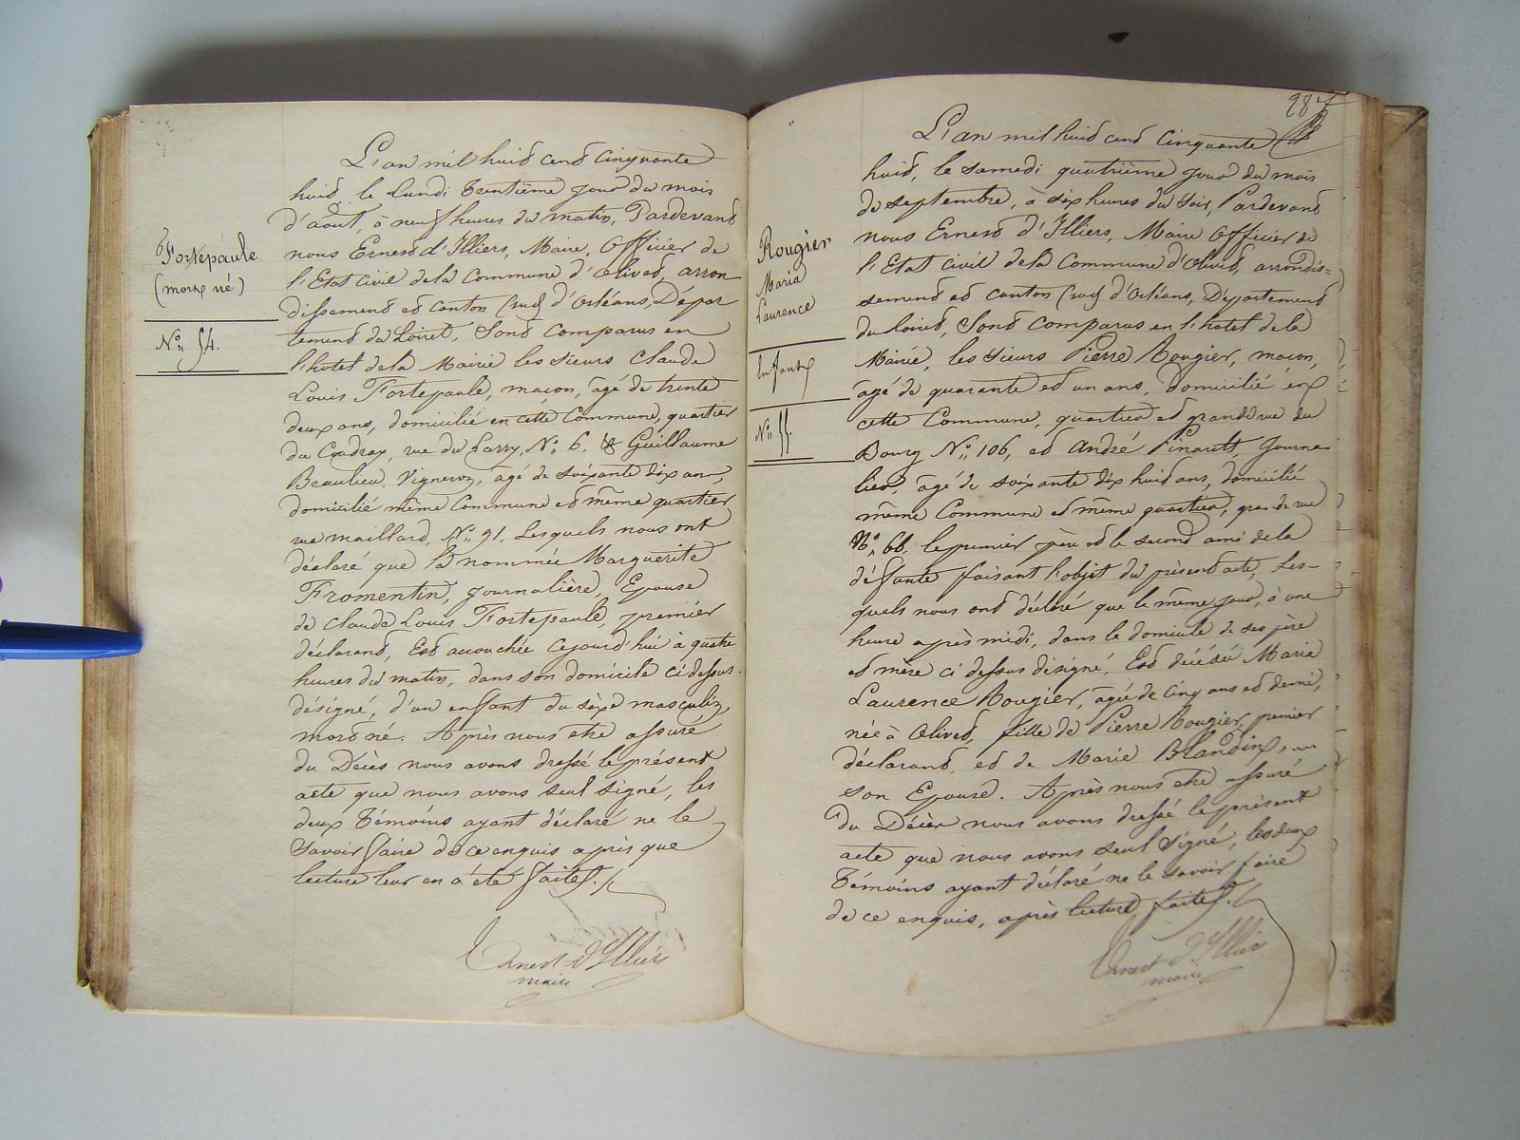 Fortépaule
(mort né)
N° 54.
L'an mil huit cent cinquante
huit le lundi trentième jour du mois
d'août, à neuf heures du matin, Pardevant
nous Ernest d'Illiers, Maire, Officier de
l'Etat civil de la Commune d'Olivet, arron
dissement et canton (sud) d'Orléans, Dépar
tement du Loiret, Sont comparus en
l'hotel de la Mairie les sieurs Claude
Louis Fortepaule, maçon, âgé de trente
deux ans, domicilié en cette Commune, quartier
du Coudray, rue du Larry, N° 6, & Guillaume
Beaulieu, Vigneron, âgé de soixante dix ans,
domicilié même Commune et même quartier
rue maillard, N° 91. Lesquels nous ont
déclaré que la nommée Marguerite
Fromentin, journalière, Epouse
de Claude Louis Fortepaule, premier
déclarant, Est accouchée cejourd'hui à quatre
heures du matin, dans son domicile ci dessus
désigné, d'un enfant du sèxe masculin
mort né. Après nous etre assuré
du Décès nous avons dressé le présent
acte que nous avons seul signé, les
deux Témoins ayant déclaré ne le
savoir faire de ce enquis après que
lecture leur en a été faite.
Ernest d'Illiers
maire
287
Rougier
Maria
Laurence
Enfant
N° 55.
L'an mil huit cent cinquante
huit, le samedi quatrième jour du mois
de septembre, à six heures du soir, Pardevant
nous Ernest d'Illiers, Maire Officier de
l'Etat civil de la Commune d'Olivet, arrondis=
sement et canton (sud) d'Orléans, Département
du Loiret, Sont comparus en l'hotel de la
Mairie, les sieurs Pierre Rougier, maçon,
âgé de quarante et un ans, domicilié en
cette Commune, quartier et grande rue du
Bourg N° 106, et André Pinault, Journa-
lier, âgé de soixante dix huit ans, domicilié
même Commune et même quartier, grande rue
N° 66. le premier père et le second ami de la
défunte faisant l'objet du présent acte, Les-
quels nous ont déclaré que le même jour, à une
heure après midi, dans le domicile de ses père
et mère ci dessus désigné, Est décédée Maria
Laurence Rougier, âgée de cinq ans et demi,
née à Olivet, fille de Pierre Rougier, premier
déclarant, et de Marie Blandin,
son Epouse. Après nous etre assuré
du Décès nous avons dressé le présent
acte que nous avons seul signé, les deux
Témoins ayant déclaré ne le savoir faire
de ce enquis, après lecture faite.
Ernest d'Illiers
maire